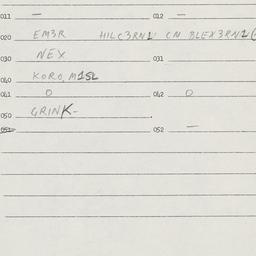 011 — 012 —
020 EM3R HILC3RN1 CN BLEX3RN1(
030 NEX 031
040 KORO, M1SL
041 0 042 0
050 GRINK-
051 052 —